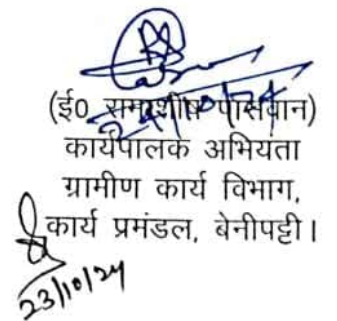 24/10/24
(ई0 रामाशीष पासवान)
कार्यपालक अभियंता
ग्रामीण कार्य विभाग,
कार्य प्रमंडल, बेनीपट्टी।
23/10/24